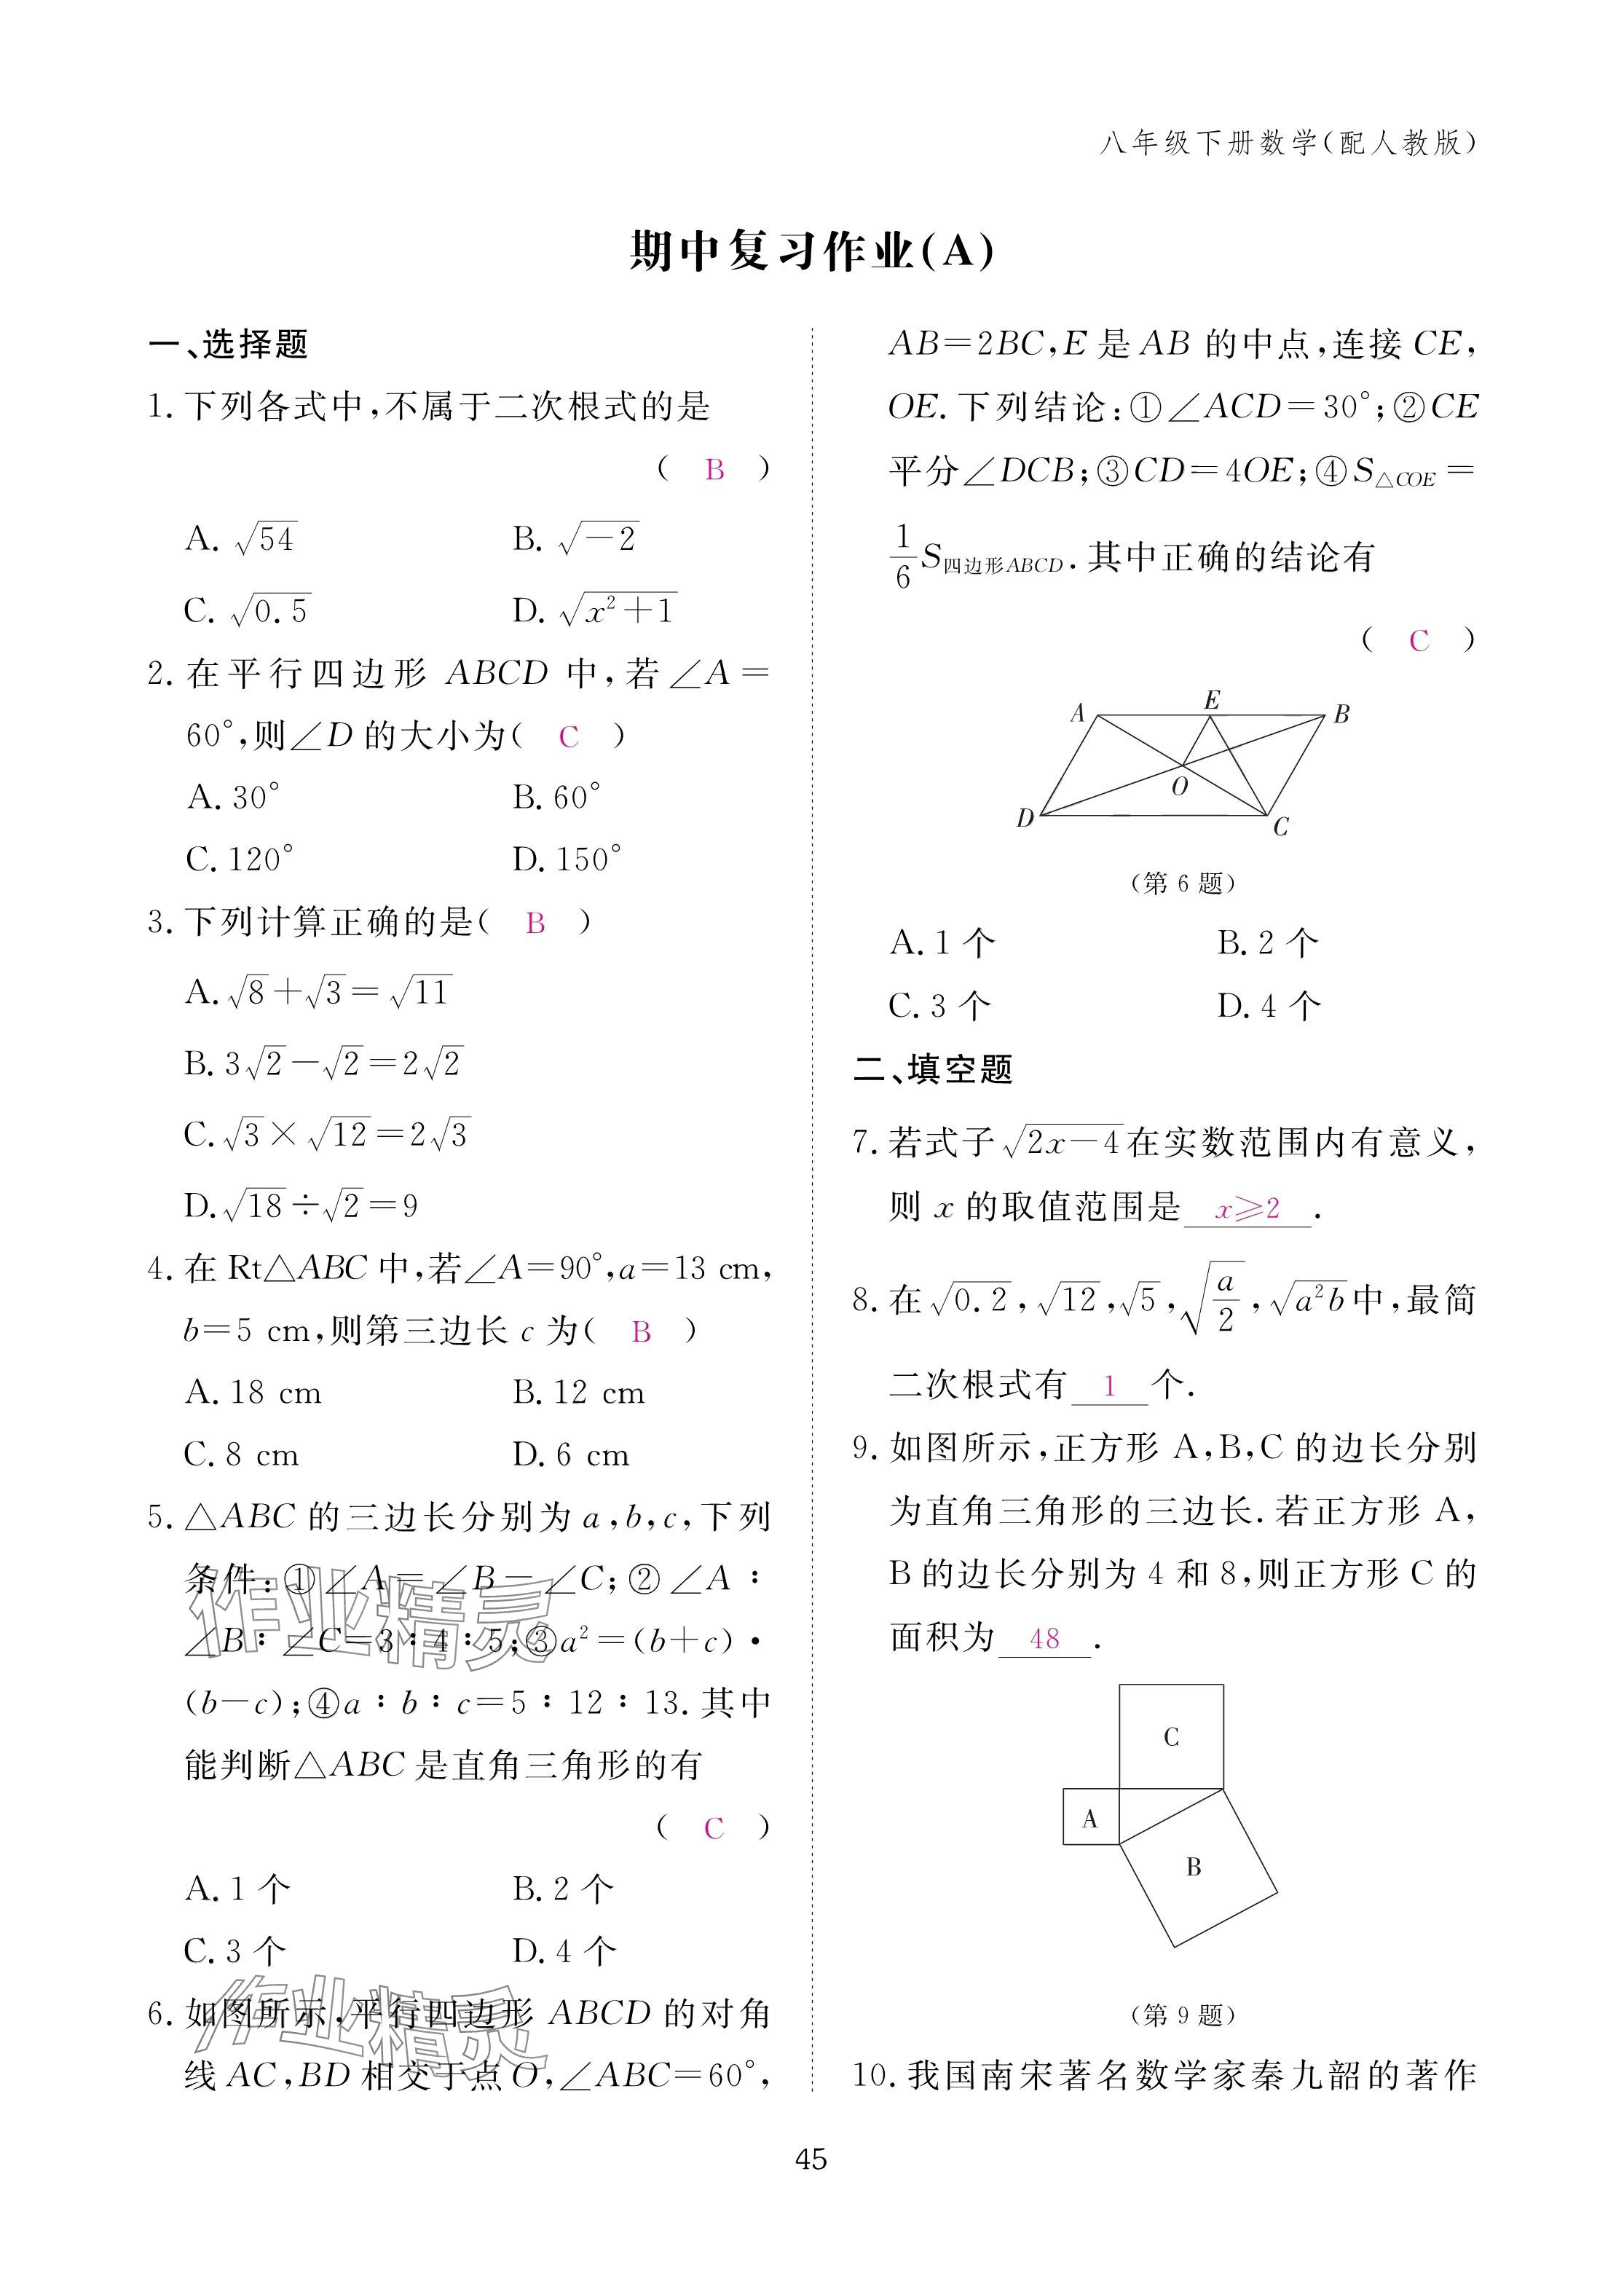 八年级下册数学(配人教版)
期中复习作业(A)
一、选择题
1. 下列各式中,不属于二次根式的是
( B )
A. √54 B. √-2
C. √0.5 D. √x²+1
2. 在平行四边形 ABCD 中,若∠A=
60°,则∠D 的大小为( C )
A. 30° B. 60°
C. 120° D. 150°
3. 下列计算正确的是( B )
A. √8+√3=√11
B. 3√2-√2=2√2
C. √3×√12=2√3
D. √18÷√2=9
4. 在 Rt△ABC 中,若∠A=90°,a=13 cm,
b=5 cm,则第三边长 c 为( B )
A. 18 cm B. 12 cm
C. 8 cm D. 6 cm
5. △ABC 的三边长分别为 a,b,c,下列
条件:①∠A=∠B-∠C;②∠A∶
∠B∶∠C=3∶4∶5;③a²=(b+c)·
(b-c);④a∶b∶c=5∶12∶13. 其中
能判断△ABC 是直角三角形的有
( C )
A. 1 个 B. 2 个
C. 3 个 D. 4 个
6. 如图所示,平行四边形 ABCD 的对角
线 AC,BD 相交于点 O,∠ABC=60°,
作业精灵
作业精灵
AB=2BC,E 是 AB 的中点,连接 CE,
OE. 下列结论:①∠ACD=30°;②CE
平分∠DCB;③CD=4OE;④S△COE=
1/6 S四边形ABCD. 其中正确的结论有
( C )
A E B
O
D C
(第 6 题)
A. 1 个 B. 2 个
C. 3 个 D. 4 个
二、填空题
7. 若式子√2x-4在实数范围内有意义,
则 x 的取值范围是 x≥2 .
8. 在√0.2,√12,√5,√a/2,√a²b中,最简
二次根式有 1 个.
9. 如图所示,正方形 A,B,C 的边长分别
为直角三角形的三边长. 若正方形 A,
B 的边长分别为 4 和 8,则正方形 C 的
面积为 48 .
C
A
B
(第 9 题)
10. 我国南宋著名数学家秦九韶的著作
45